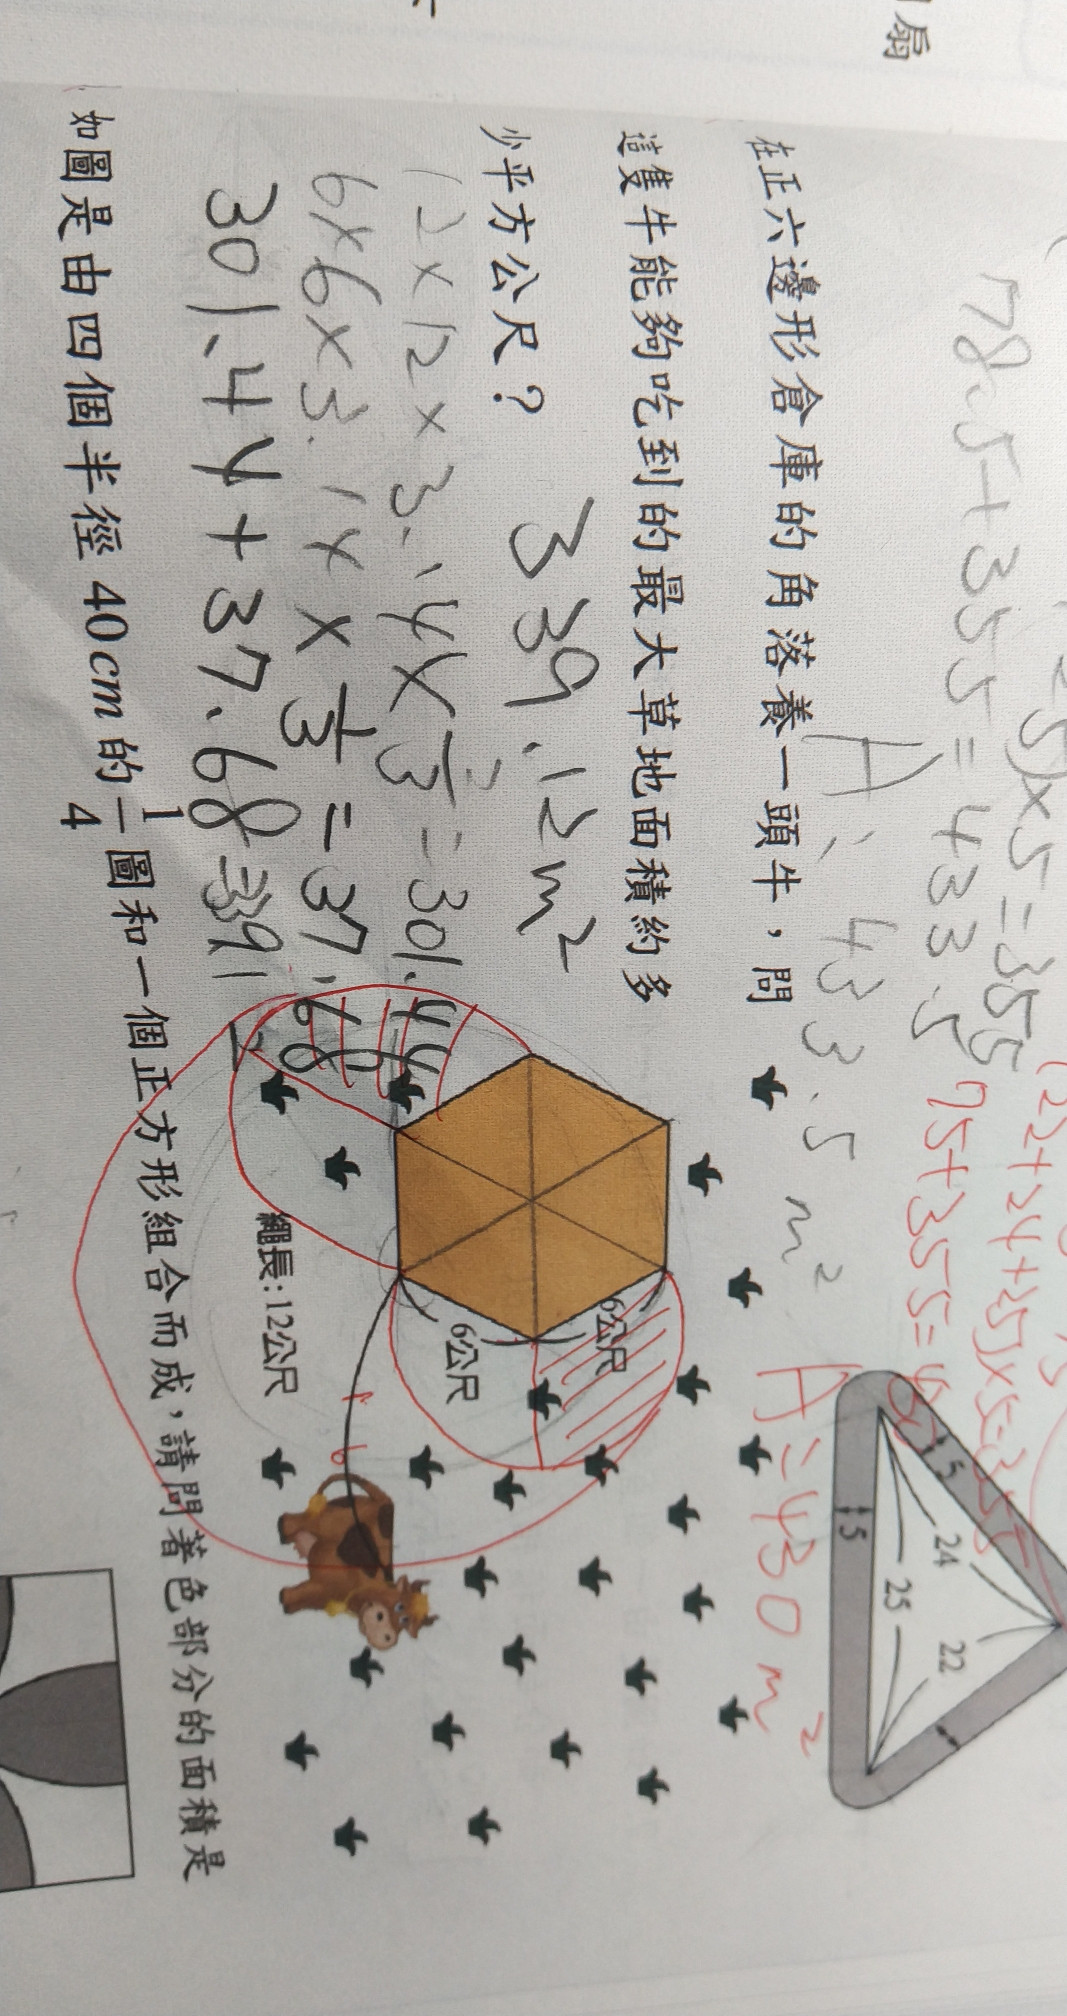 扇
78.5+355=433.5
)×5=355
A:433.5 m²
75+355=4
A=430 m²
5
24
22
25
5
在正六邊形倉庫的角落養一頭牛，問
這隻牛能夠吃到的最大草地面積約多
少平方公尺？
339.12m²
12×12×3.14×
=301.44
6×6×3.1×
×1/3=37.68
301.44+37.68=339.12
6公尺
6公尺
繩長:12公尺
如圖是由四個半徑40cm的1/4圖和一個正方形組合而成，請問著色部分的面積是